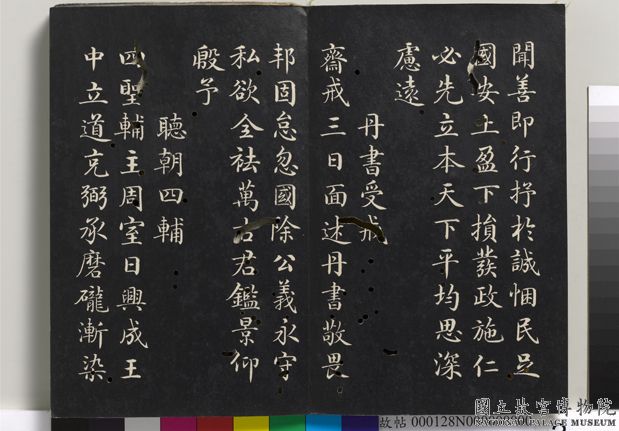 聞善即行抒於誠悃民足
國安土盈下損發政施仁
必先立本天下平均思深
慮遠
丹書受戒
齋戒三日面述丹書敬畏
邦固怠忽國除公義永守
私欲全祛萬古君鑑景仰
殷予
聽朝四輔
四聖輔主周室日興成王
中立道充弼承磨礲漸染
國立故宮博物院
NATIONAL PALACE MUSEUM
故帖 000128N0